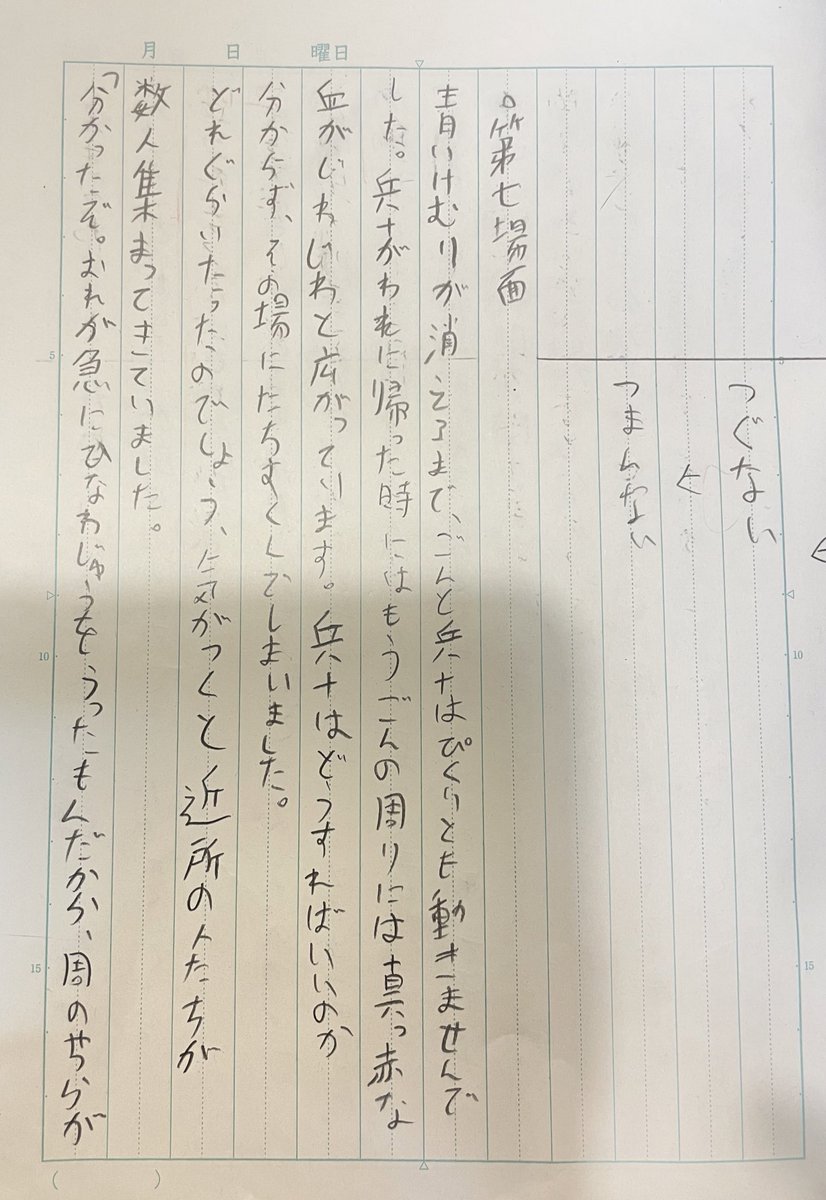 つぐない
↓
つまらない
。第七場面
青いけむりが消えるまで、ごんと兵十はぴくりとも動きませんで
した。兵十がわれに帰った時にはもうごんの周りには真っ赤な
血がじわじわと広がっています。兵十はどうすればいいのか
分からず、その場にたちすくんでしまいました。
どれぐらいたったのでしょう、気がつくと近所の人たちが
数人集まってきていました。
「分かったぞ。おれが急にひなわじゅうをうったもんだから、周のやらが
月 日 曜日
5
10
15
5
10
15
( )